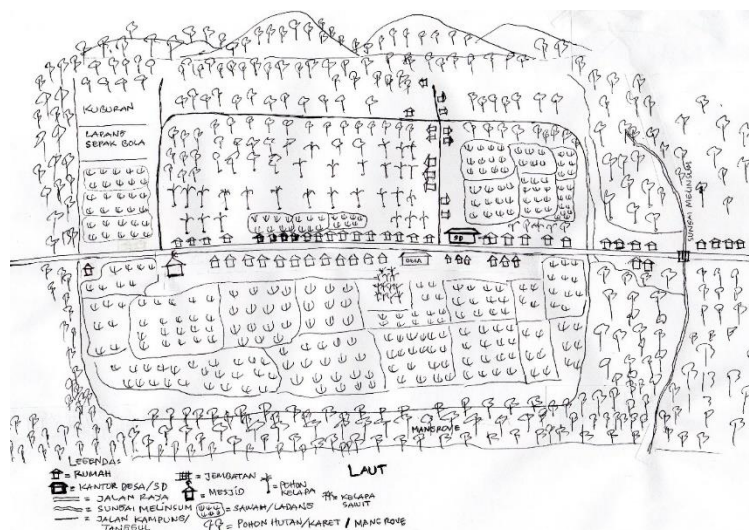 KUBURAN
LAPANG
SEPAK BOLA
SUNGAI MELINSUM
SD
DESA
MANGROVE
LAUT
LEGENDA:
= RUMAH
= KANTOR DESA/SD
= JALAN RAYA
= SUNGAI MELINSUM
= JALAN KAMPUNG/
TANGGUL
= JEMBATAN
= MESJID
= SAWAH/LADANG
= POHON HUTAN/KARET/MANGROVE
= POHON
KELAPA
= KELAPA
SAWIT